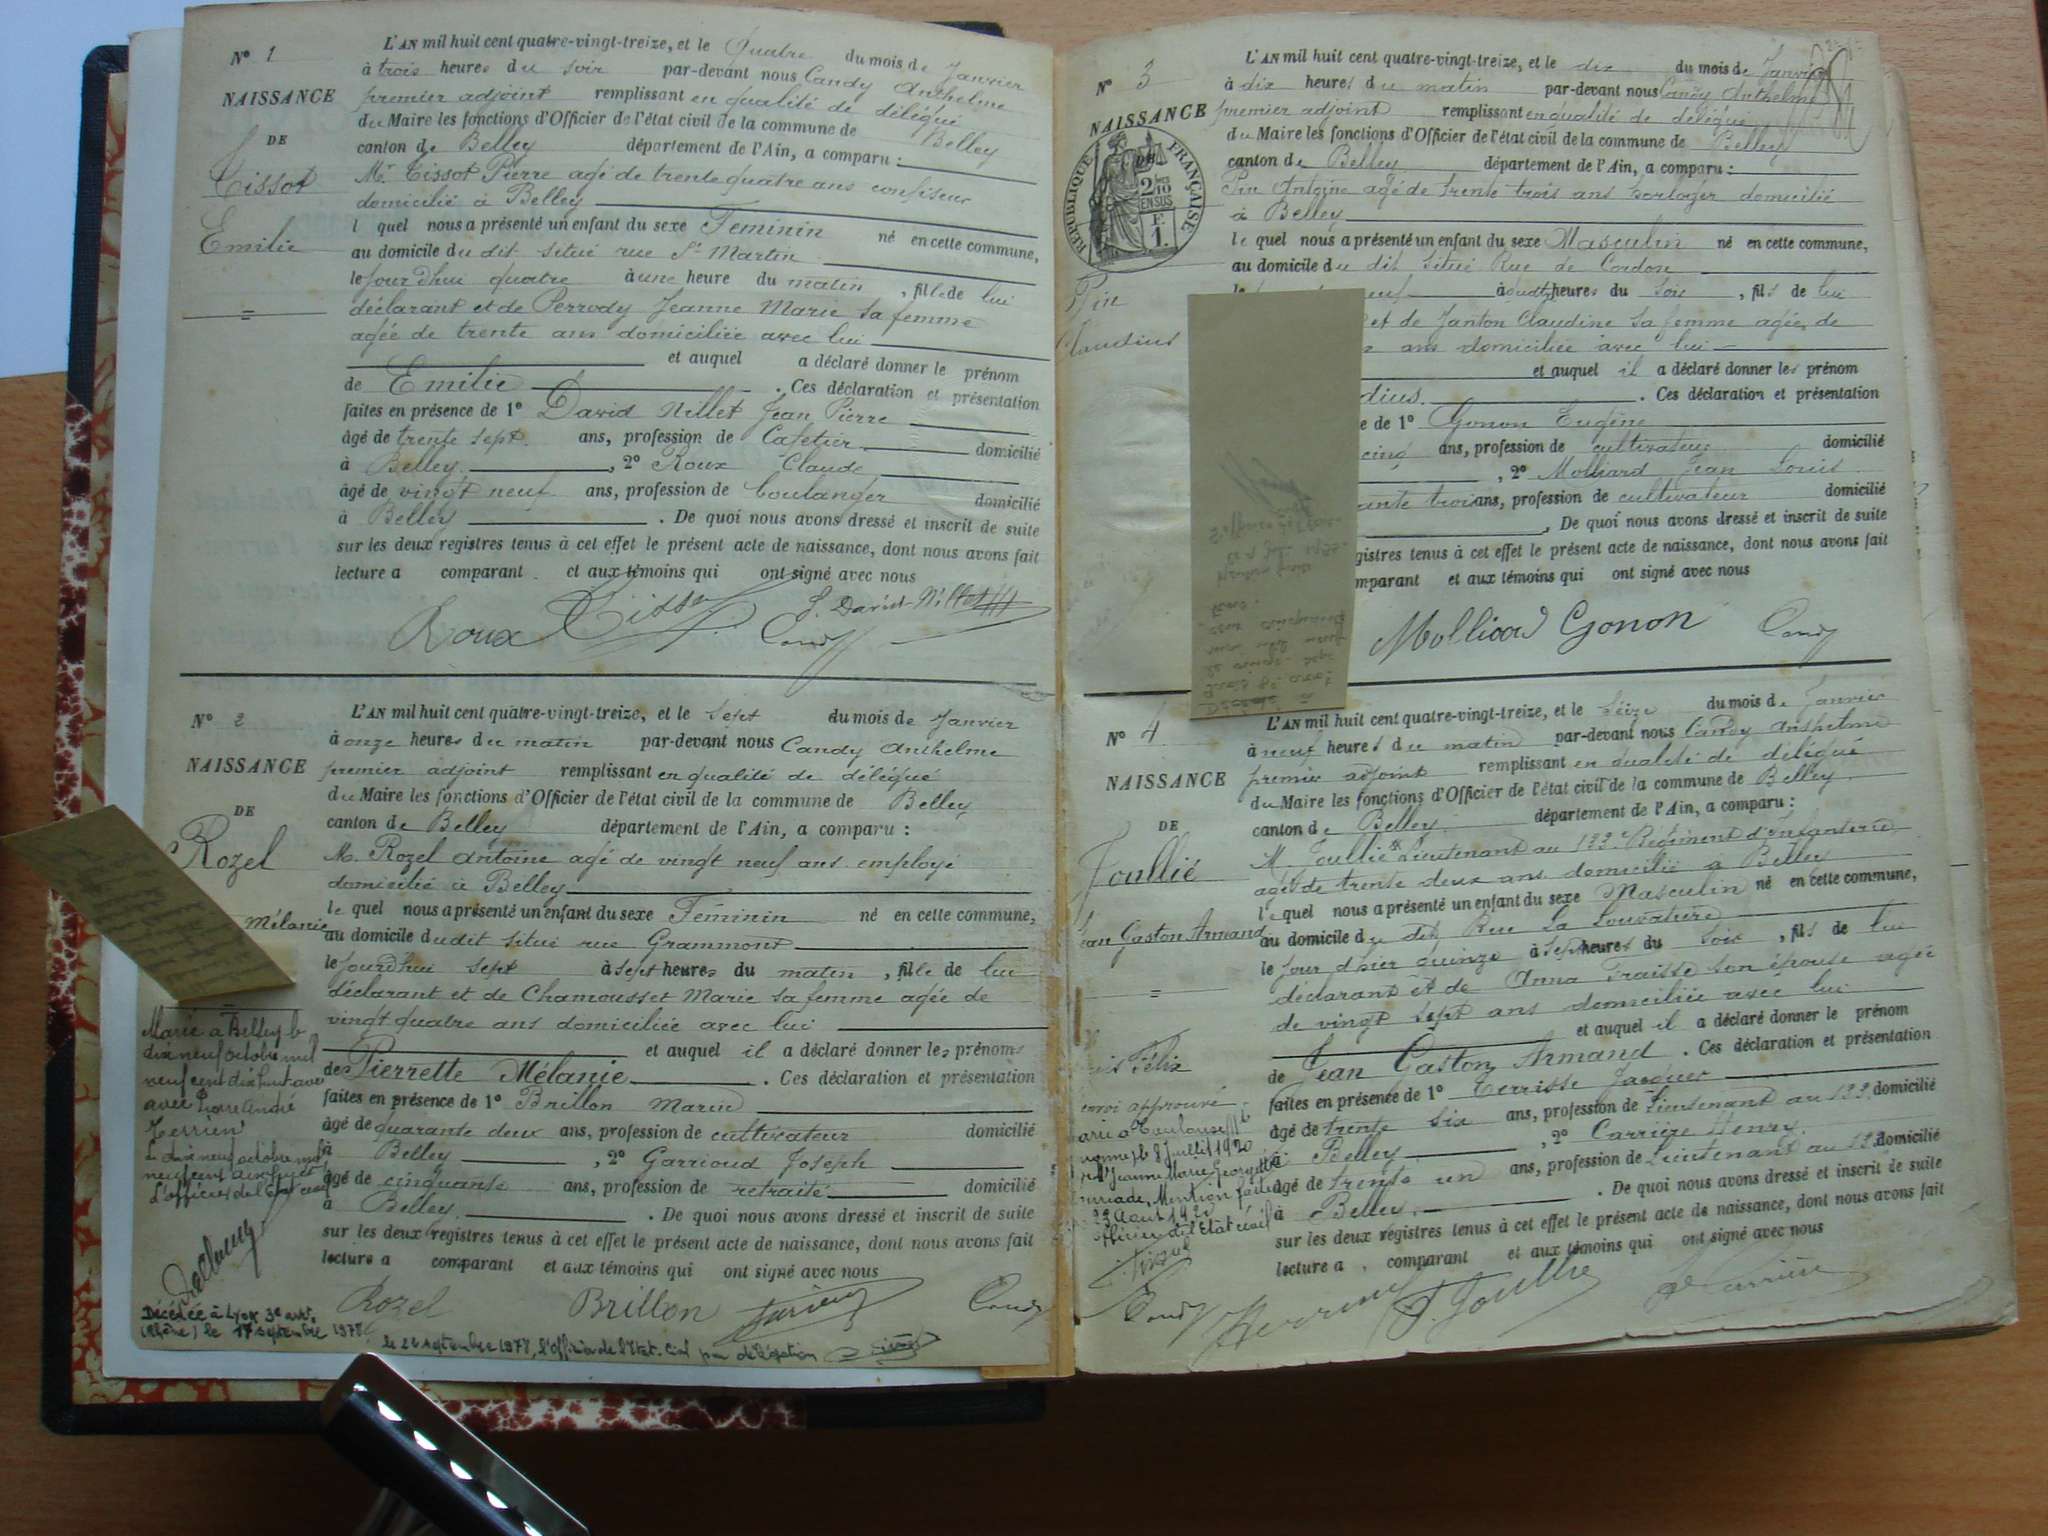 N° 1
NAISSANCE
DE
Tissot
Emilie
L'AN mil huit cent quatre-vingt-treize, et le Quatre du mois de Janvier
à trois heures du soir par-devant nous Candy Anthelme
premier adjoint remplissant en qualité de délégué
du Maire les fonctions d'Officier de l'état civil de la commune de Belley
canton de Belley département de l'Ain, a comparu :
Mr. Tissot Pierre agé de trente quatre ans confiseur
domicilié à Belley
lequel nous a présenté un enfant du sexe Feminin né en cette commune,
au domicile du dit situé rue St Martin
le jourd'hui quatre à une heure du matin, fille de lui
déclarant et de Perrody Jeanne Marie sa femme
agée de trente ans domiciliée avec lui
et auquel a déclaré donner le prénom
de Emilie. Ces déclaration et présentation
faites en présence de 1° David Nillet Jean Pierre
âgé de trente sept ans, profession de Cafetier domicilié
à Belley, 2° Roux Claude
âgé de vingt neuf ans, profession de boulanger domicilié
à Belley. De quoi nous avons dressé et inscrit de suite
sur les deux registres tenus à cet effet le présent acte de naissance, dont nous avons fait
lecture a comparant et aux témoins qui ont signé avec nous
Roux Tissot J. David Nillet
Candy
N° 2
NAISSANCE
DE
Rozel
Mélanie
L'AN mil huit cent quatre-vingt-treize, et le sept du mois de Janvier
à onze heures du matin par-devant nous Candy Anthelme
premier adjoint remplissant en qualité de délégué
du Maire les fonctions d'Officier de l'état civil de la commune de Belley
canton de Belley département de l'Ain, a comparu :
M. Rozel Antoine agé de vingt neuf ans employé
domicilié à Belley
lequel nous a présenté un enfant du sexe Féminin né en cette commune,
au domicile dudit situé rue Grammont
le jourd'hui sept à sept heures du matin, fille de lui
déclarant et de Chamousset Marie sa femme agée de
vingt quatre ans domiciliée avec lui
et auquel il a déclaré donner les prénoms
de Pierrette Mélanie. Ces déclaration et présentation
faites en présence de 1° Brillon Marin
âgé de quarante deux ans, profession de cultivateur domicilié
à Belley, 2° Garrioud Joseph
âgé de cinquante ans, profession de retraité domicilié
à Belley. De quoi nous avons dressé et inscrit de suite
sur les deux registres tenus à cet effet le présent acte de naissance, dont nous avons fait
lecture a comparant et aux témoins qui ont signé avec nous
Rozel Brillon Candy
Marié à Belley le
dix neuf octobre mil
neuf cent dix huit avec
avec Pierre André
Terrien
Le dix neuf octobre mil
neuf cent dix huit
L'officier de l'Etat civil
Décédée à Lyon 3e arrt.
(Rhône) le 17 septembre 1977
le 26 septembre 1977, l'officier de l'Etat Civil par délégation
N° 3
NAISSANCE
DE
RÉPUBLIQUE FRANÇAISE
2/10 EN SUS
F. 1.
Pin
Claudius
L'AN mil huit cent quatre-vingt-treize, et le dix du mois de Janvier
à dix heures du matin par-devant nous Candy Anthelme
premier adjoint remplissant en qualité de délégué
du Maire les fonctions d'Officier de l'état civil de la commune de Belley
canton de Belley département de l'Ain, a comparu :
Pin Antoine agé de trente trois ans horloger domicilié
à Belley
lequel nous a présenté un enfant du sexe Masculin né en cette commune,
au domicile du dit situé Rue de Cordon
heures du soir, fils de lui
et de Janton Claudine sa femme agée de
ans domiciliée avec lui
et auquel il a déclaré donner les prénom
dius. Ces déclaration et présentation
e de 1° Gonon Eugène
cinq ans, profession de cultivateur domicilié
, 2° Molliard Jean Louis
ante trois ans, profession de cultivateur domicilié
. De quoi nous avons dressé et inscrit de suite
egistres tenus à cet effet le présent acte de naissance, dont nous avons fait
mparant et aux témoins qui ont signé avec nous
Molliard Gonon Candy
N° 4
NAISSANCE
DE
Joullié
Jean Gaston Armand
L'AN mil huit cent quatre-vingt-treize, et le seize du mois de Janvier
à neuf heures du matin par-devant nous Candy Anthelme
premier adjoint remplissant en qualité de délégué
du Maire les fonctions d'Officier de l'état civil de la commune de Belley
canton de Belley département de l'Ain, a comparu :
M. Joullié Lieutenant au 133e Régiment d'Infanterie
agé de trente deux ans domicilié à Belley
lequel nous a présenté un enfant du sexe Masculin né en cette commune,
au domicile du dit Rue La
le jour d'hier quinze à sept heures du soir, fils de lui
déclarant et de Anna Fraisse son épouse agée
de vingt sept ans domiciliée avec lui
et auquel il a déclaré donner le prénom
de Jean Gaston Armand. Ces déclaration et présentation
faites en présence de 1° Terrisse Jacques
âgé de trente six ans, profession de Lieutenant au 133e domicilié
à Belley, 2° Carrière Henry
âgé de trente un ans, profession de Lieutenant au 133e domicilié
à Belley. De quoi nous avons dressé et inscrit de suite
sur les deux registres tenus à cet effet le présent acte de naissance, dont nous avons fait
lecture a comparant et aux témoins qui ont signé avec nous
Candy J. Joullié Carrière
Félix
envoi approuvé
arié à Toulouse
le 8 Juillet 1920
Jeanne Marie Georgette
Mention faite le
23 Août 1920
officier de l'Etat civil